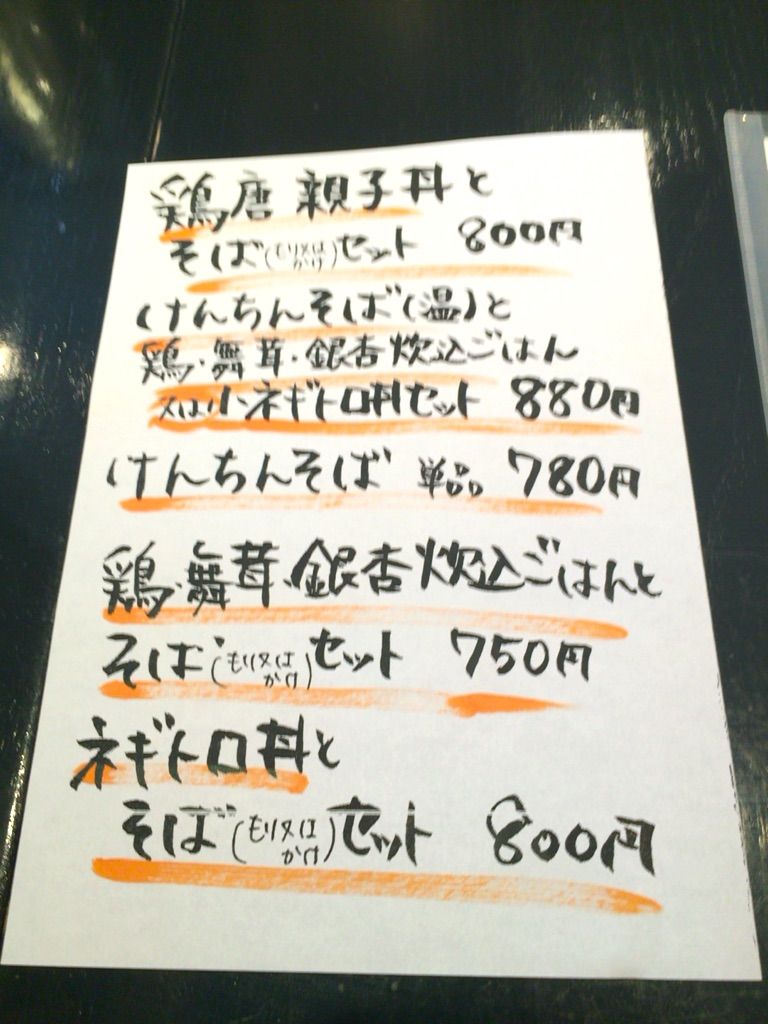 鶏唐 親子丼と
そば(もり又はかけ)セット 800円
けんちんそば(温)と
鶏・舞茸・銀杏炊込ごはん
又は小ネギトロ丼セット 880円
けんちんそば 単品 780円
鶏・舞茸・銀杏炊込ごはんと
そば(もり又はかけ)セット 750円
ネギトロ丼と
そば(もり又はかけ)セット 800円